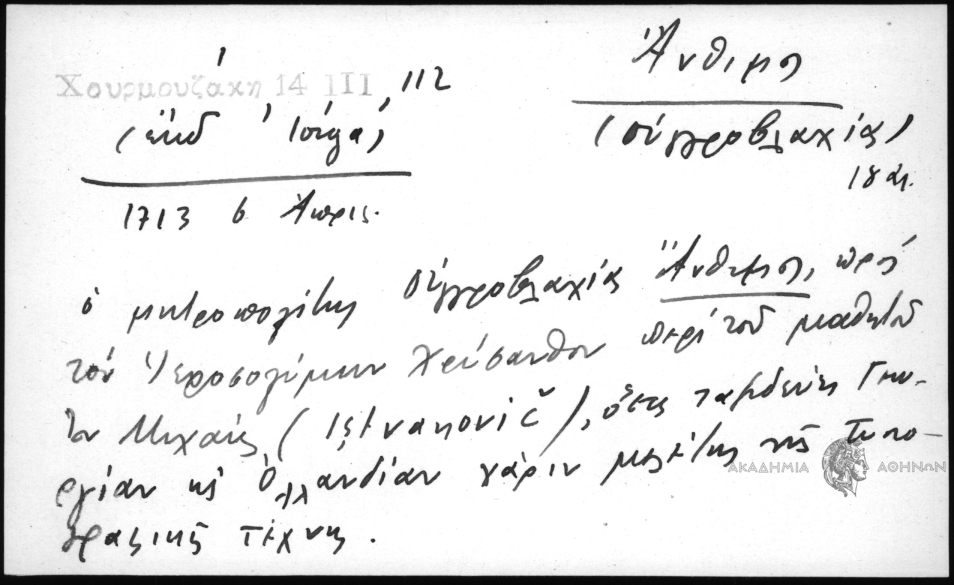 Χουρμουζάκη 14 III, 112
(ἐκδ Ἰόργα)
1713 6 Ἀπρις.
Ἄνθιμος
(Οὑγγροβλαχίας)
18 αι.
ὁ μητροπολίτης Οὑγγροβλαχίας Ἄνθιμος, πρός
τόν Ἱεροσολύμων Χρύσανθον περί τοῦ μαθητοῦ
του Μιχαήλ (Iştvanović), ὅστις ταξιδεύει
εἰς Ὁλλανδίαν χάριν μελέτης τῆς Τυπο-
γραφικῆς τέχνης.
ΑΚΑΔΗΜΙΑ ΑΘΗΝΩΝ